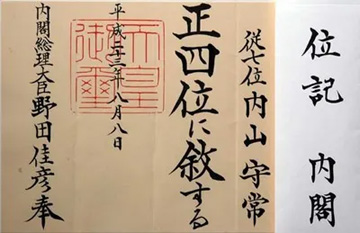 位記　内閣
従七位内山守常
正四位に敘する
平成二十三年八月八日
天皇御璽
内閣総理大臣野田佳彦奉